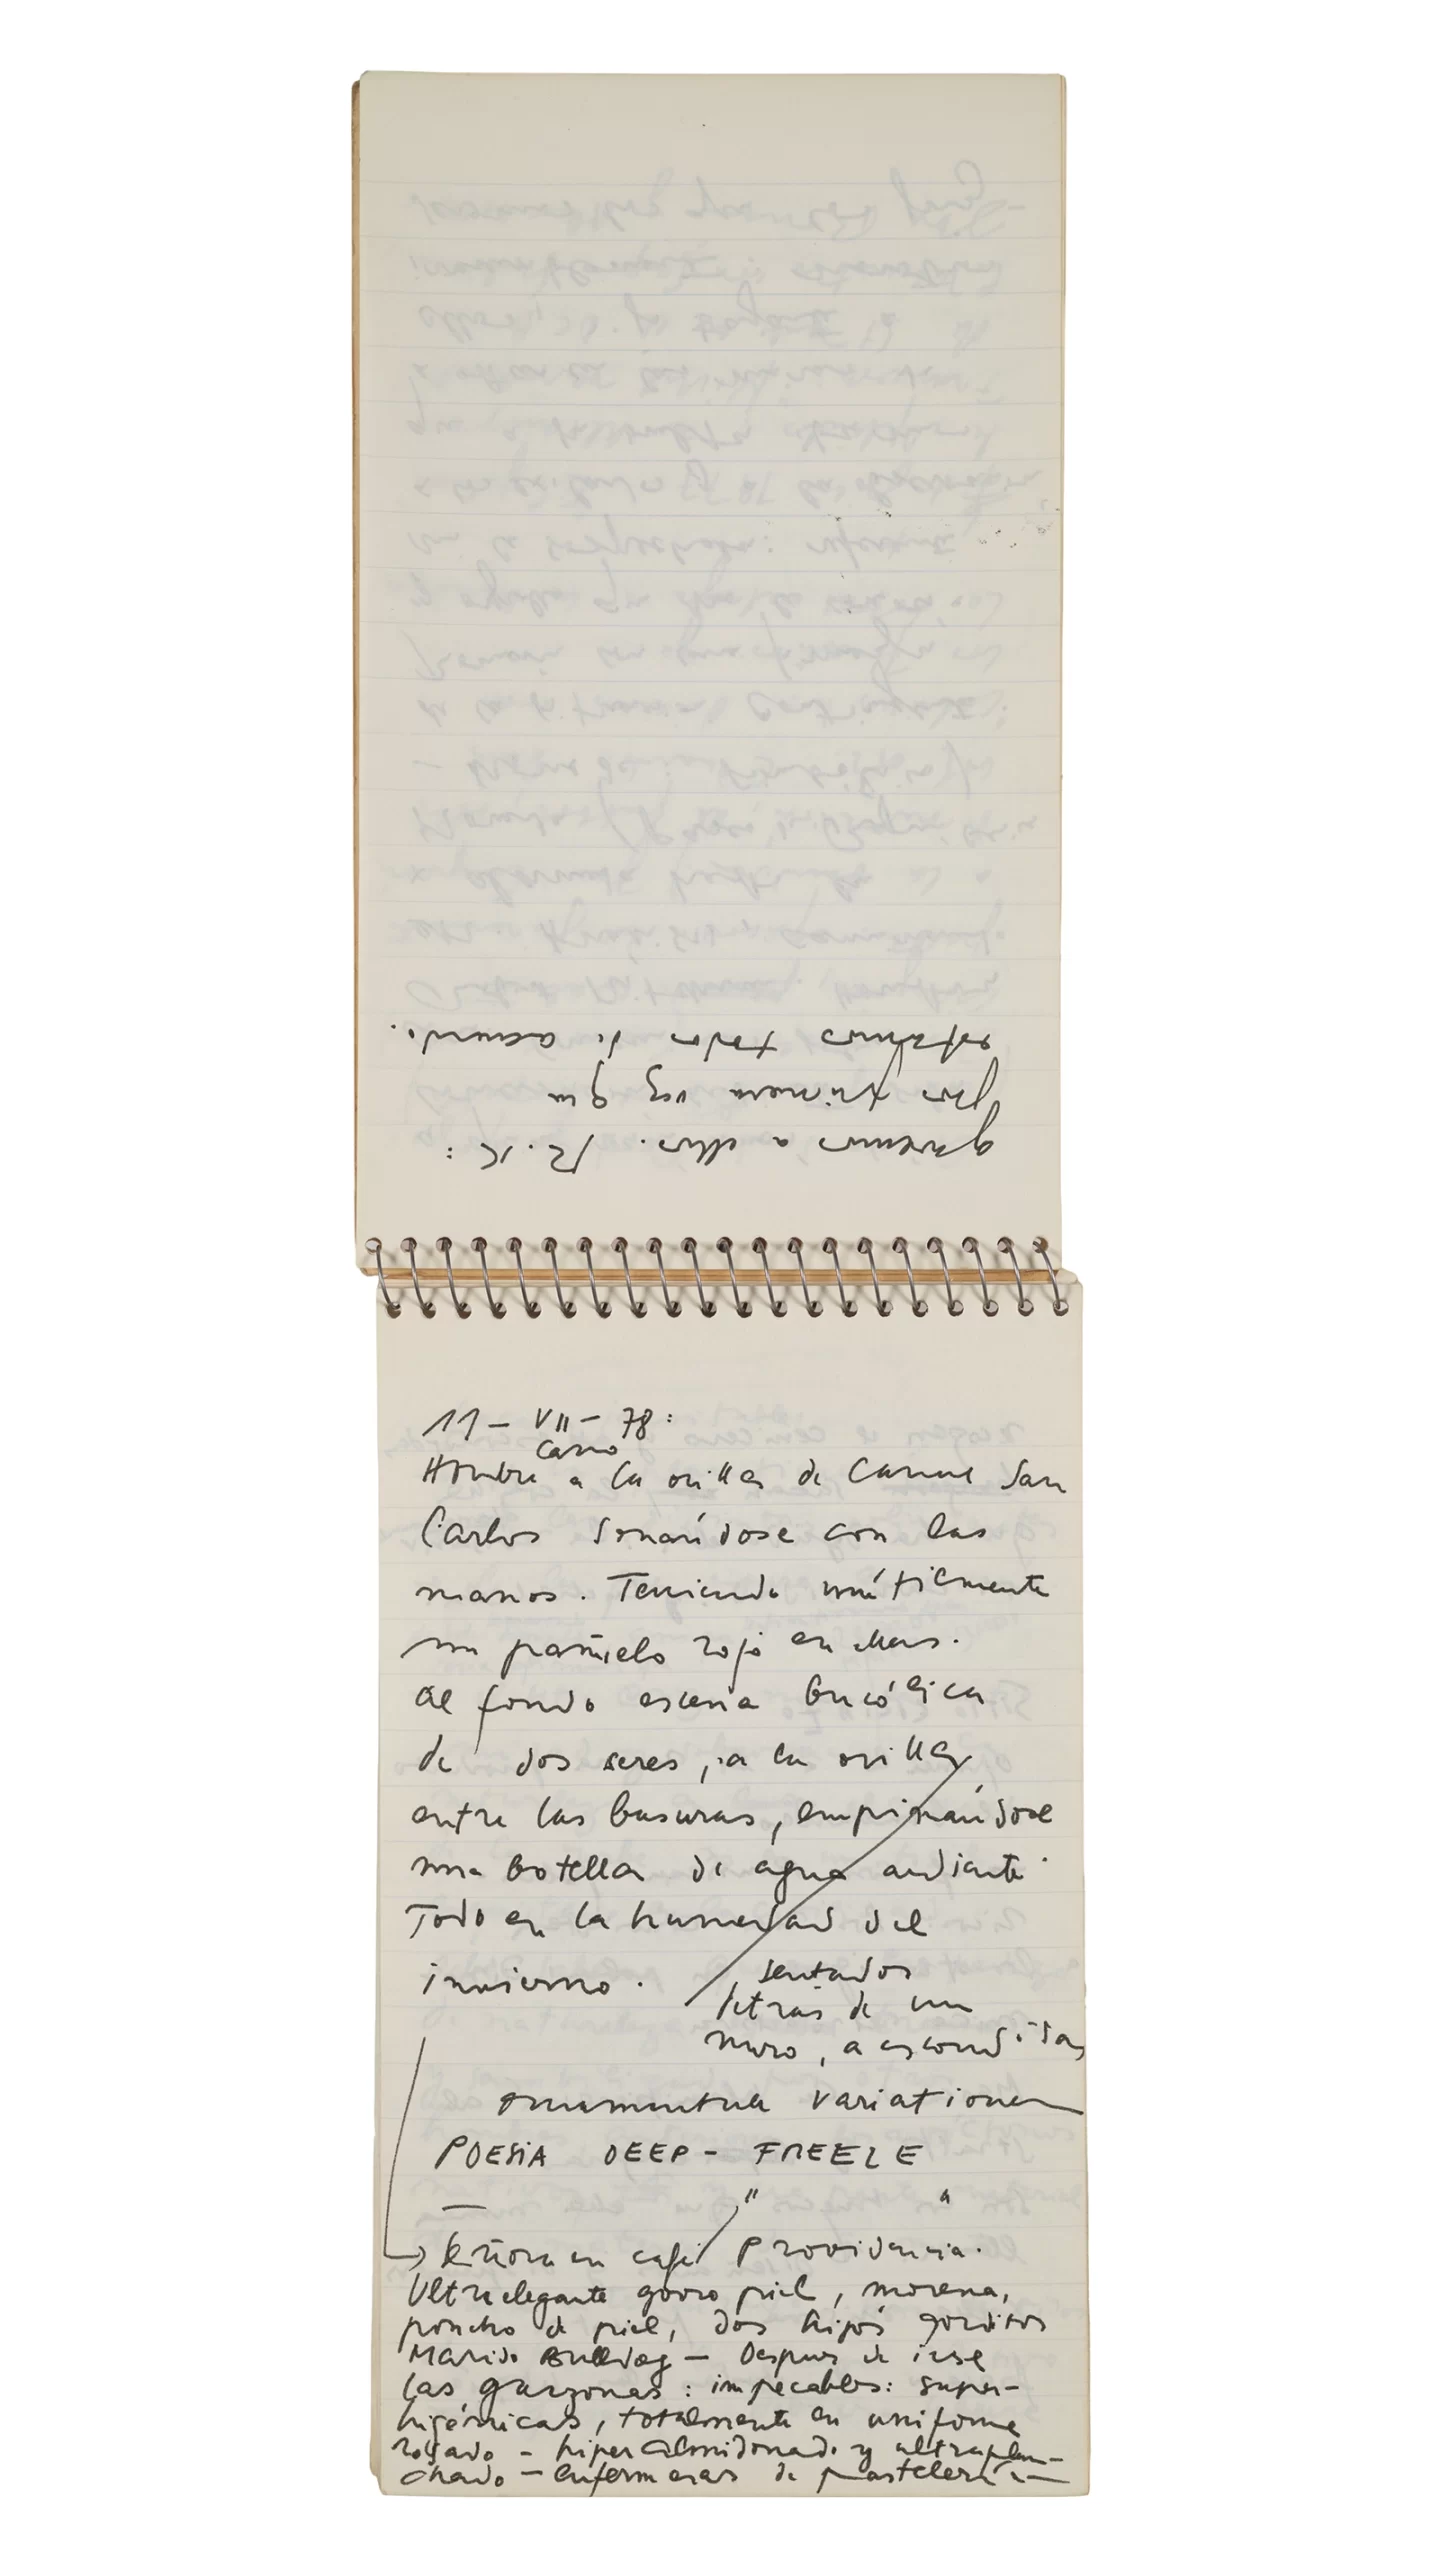 garemos a ellos. R.K:
por primera vez que
estamos todos de acuerdo.
11 - VII - 78:
cano
Hombre a la orilla de Canal San
Carlos sonándose con las
manos. Teniendo inútilmente
un pañuelo rojo en ellas.
Al fondo escena bucólica
de dos seres, a la orilla
entre las basuras, empinándose
una botella de aguardiente.
Todo en la humedad del
invierno.
, sentados
detrás de un
muro, a escondidas
ornamentale variationen
POESIA DEEP-FREEZE
— " "
Señora en café Providencia.
Ultraelegante gorro piel, morena,
poncho de piel, dos hijos gorditos
Marido Bulldog — Despues de irse
las garzonas: impecables: super-
higiénicas, totalmente en uniforme
rosado - hiperalmidonado y ultraplan-
chado - enfermeras de pastelería —